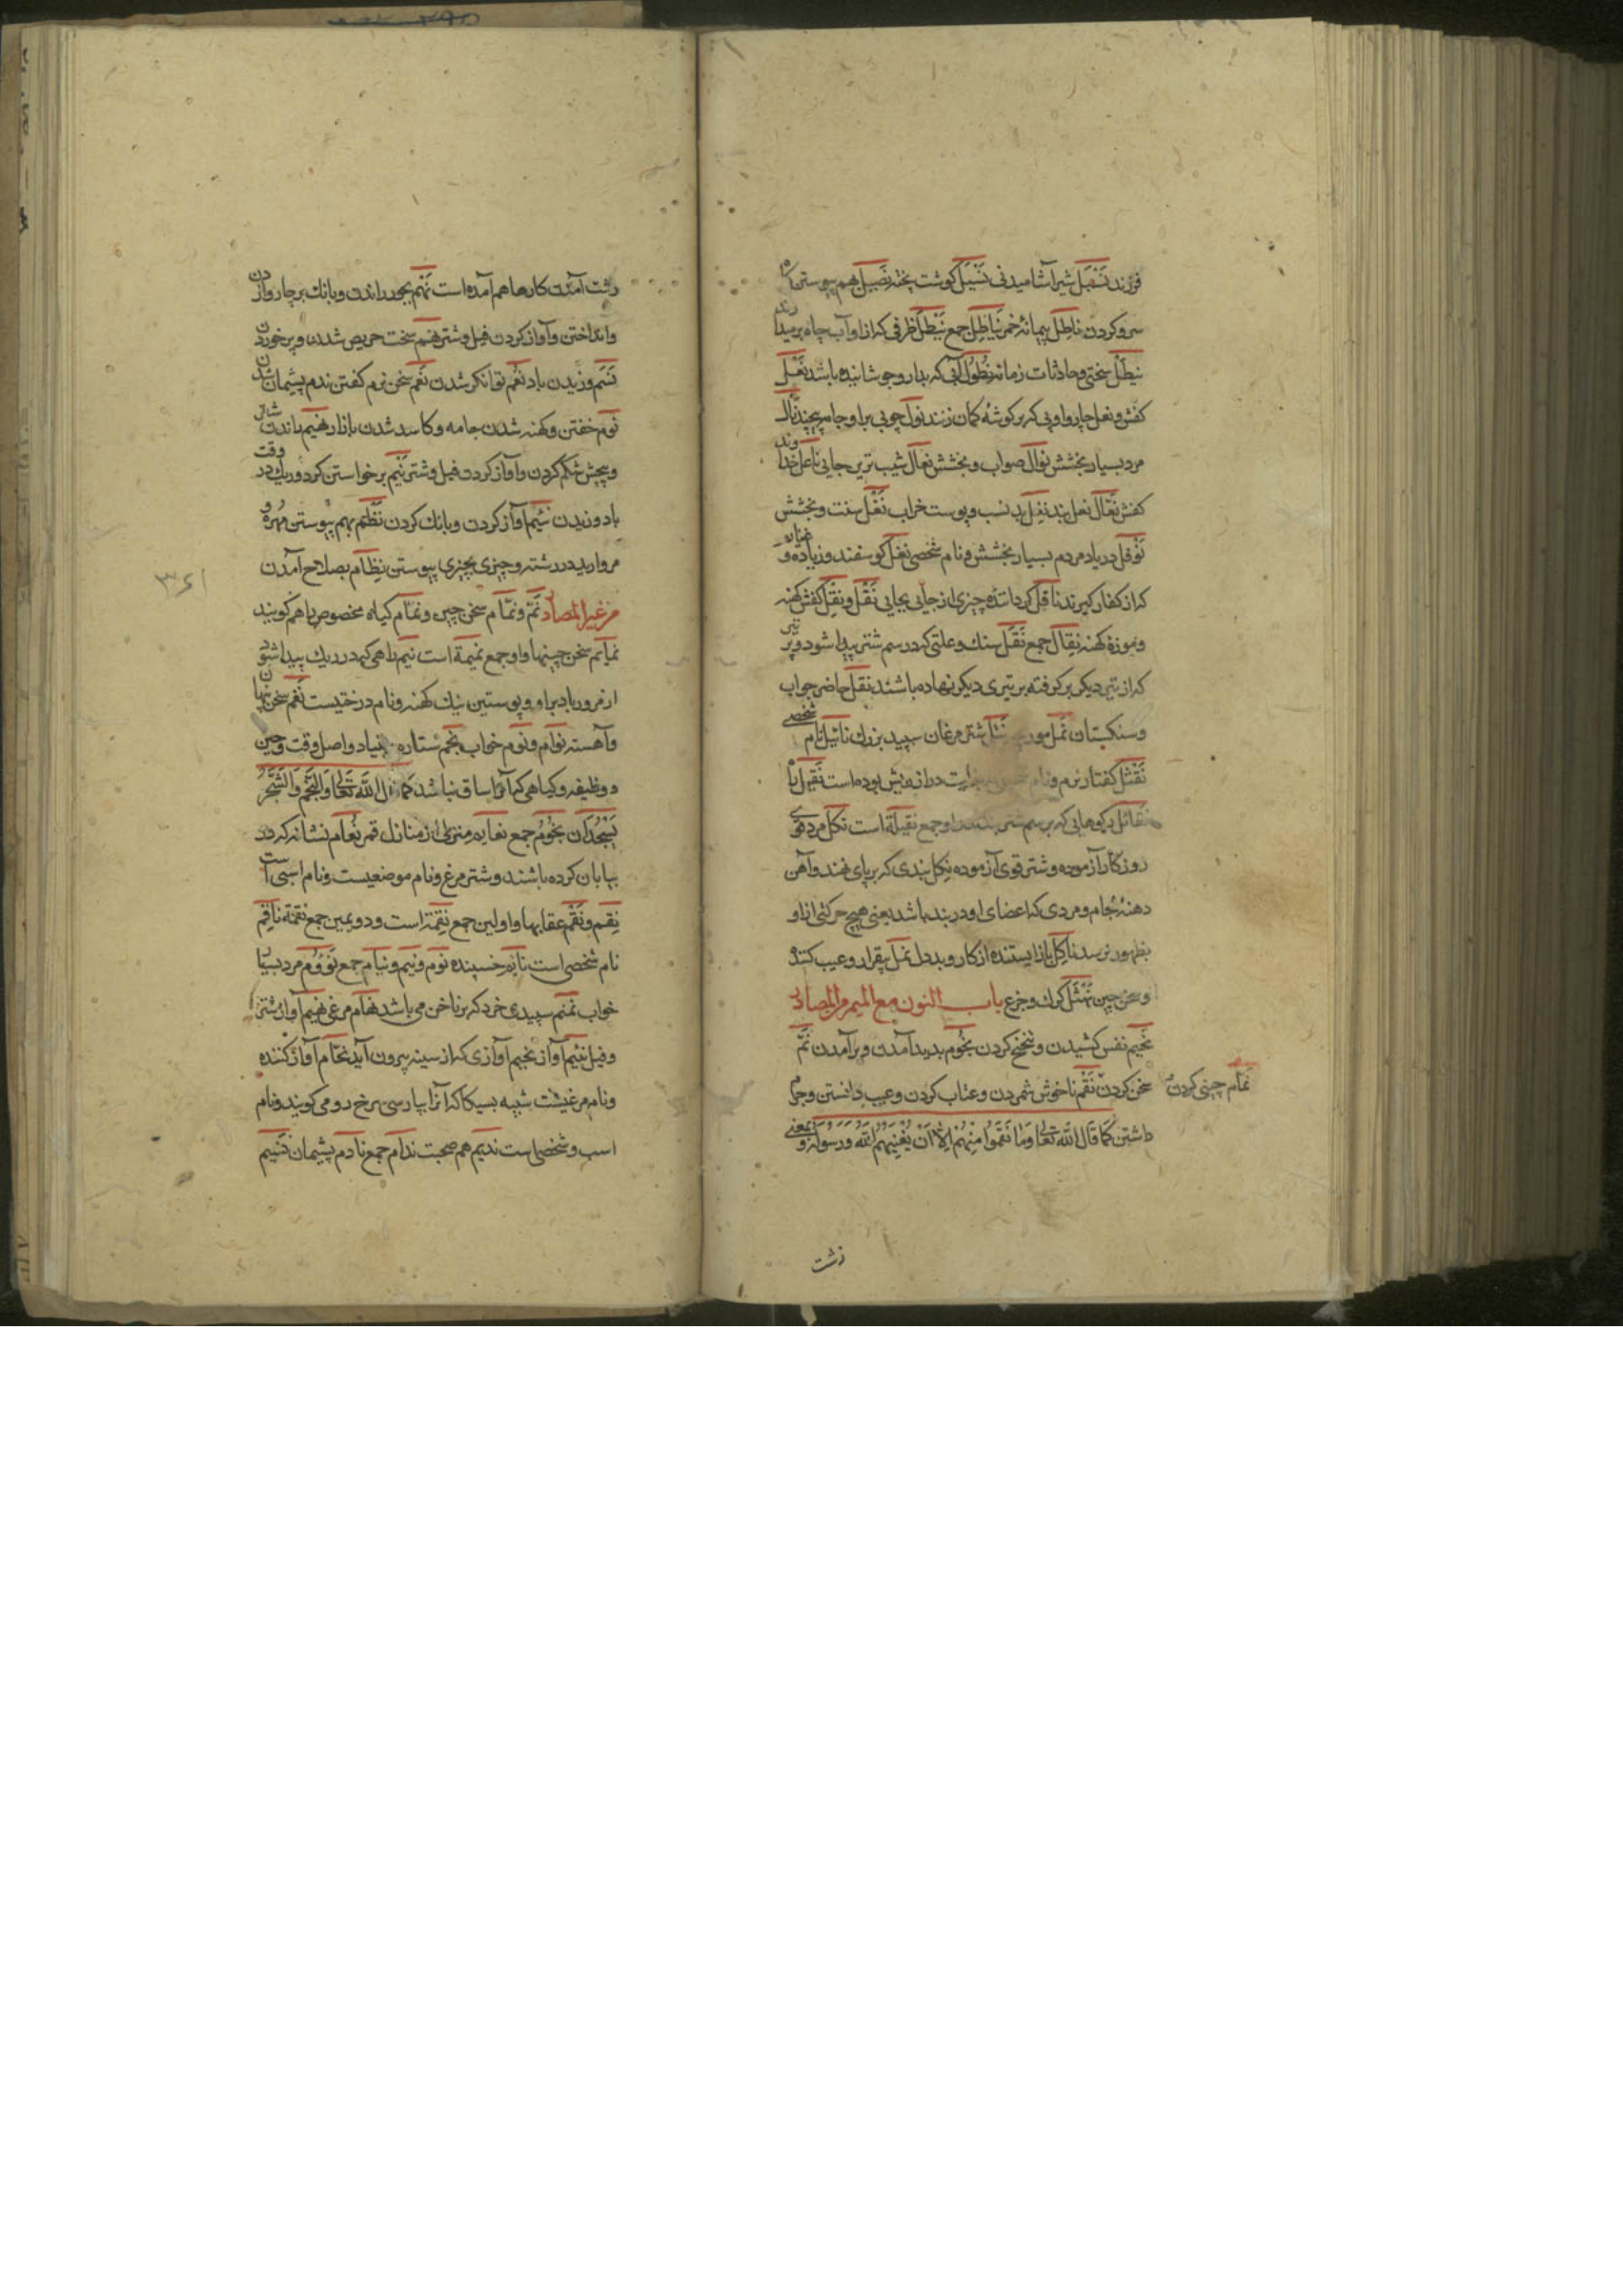 فرزند نسیل شیر آشامیدنی نشیل کوشت پخته نصیل هم پیوستن کا
سر و کردن ناطل پیمانهٔ خمر نیاطل جمع نیطل ظرفی که ازاو آب چاه برمیدا رند
نیطل سختی و حادثات زمانه نطول آبی که بدارو جوشانیده باشد نعل
کفش و نعل چاروا و پی که بر کوشهٔ کمان زنند نول چوبی براو جامه پیچند نال
مرد بسیار بخشش نوال صواب و بخشش نعال شیب ترین جایی ناعل خدا وند
کفش نعال نعل بند نغل بد نسب و پوست خراب نفل سنت و بخشش
نوفل دریا و مردم بسیار بخشش و نام شخصی نفل کوسفند و زیاده و
که از کفار کیرند ناقل کرداننده چیزی از جایی بجایی نقل و نقل کفش کهنه
و موزهٔ کهنه نقال جمع نقل سنك و علتی که در سم شتر پیدا شود و پر تیر
که از تیری دیکر بر کرفته بر تیری دیکر نهاده باشند نقل حاضر جواب
و سنکستان نمل مور شتر مرغان سپید بزرك نائیل نام شخصی
نقثل کفتار نرم و نام دراز بوده است نقیل نا
نقائل که بر سم شتر او جمع نقیلة است نکل مرد قوی
روزکار آزموده و شتر قوی آزموده نکل بندی که بر پای نهند و آهن
دهنهٔ لجام و مردی که اعضای او در بند باشد یعنی هیچ حرکتی ازاو
بظهور نرسد ناکل باز ایستنده از کار و بد دل نمل بیقرار و عیب کننده
و سخن چین نهشل کرك و جزع باب النون مع المیم من المصادر
نحیم نفس کشیدن و تنحنح کردن نجوم پدید آمدن و برآمدن نم
سخن کردن نقم ناخوش شمردن و عتاب کردن و عیب دانستن و جرم
نمام چینی کردن
داشتن کما قال الله تعالی وما نقموا منهم الا ان یغنیهم الله ورسوله و بمعنی
زشت
زشت آمدن کارها هم آمده است نهم بجور راندن و بانك بر چاروا ز دن
و انداختن و آواز کردن فیل و شتر نهم سخت حریص شدن و پر خوردن
نسم وزیدن باد نعم توانکر شدن نغم سخن نرم کفتن ندم پشیمان شدن
نوم خفتن و کهنه شدن جامه و کاسد شدن بازار نهیم راندن شتر
و پیچش شکم کردن و آواز کردن فیل و شتر نیم برخواستن کرد و ریك در وقت
باد وزیدن نئیم آواز کردن و بانك کردن نظم بهم پیوستن مهره و
مروارید در رشته و چیزی بچیزی پیوستن نظام بصلاح آمدن
من غیر المصادر نم و نمام سخن چین و نمام کیاه مخصوص را هم کویند
نمایم سخن چینیها و او جمع نمیمة است نیم راهی که در ریك پیدا شود
از مرور باد براو و پوستین نیك کهنه و نام درختیست نغم سخن پنهان
و آهسته نوام و نوم خواب نجم ستاره بنیاد و اصل وقت و حین
و وظیفه و کیاهی که آنرا ساق نباشد کما قال الله تعالی والنجم والشجر
یسجدان نجوم جمع نعایم منزلی از منازل قمر نعام نشانه که در
بیابان کرده باشند و شتر مرغ و نام موضعیست و نام اسبی است
نقم و نقم عقابها و اولین جمع نقمة است و دویمین جمع نقمة ناقم
نام شخصی است نایم خسپنده نوم و نیم و نیام جمع نووم مرد بسیار
خواب نمنم سپیدی خرد که بر ناخن می باشد نهام مرغی نهیم آواز شتر
و فیل نئیم آواز نحیم آوازی که از سینه بیرون آید نحام آواز کننده
و نام مرغیست شبیه بسیکا که آنرا بپارسی سرخ رو می کویند و نام
اسب و شخصی است ندیم هم صحبت ندام جمع نادم پشیمان نسیم